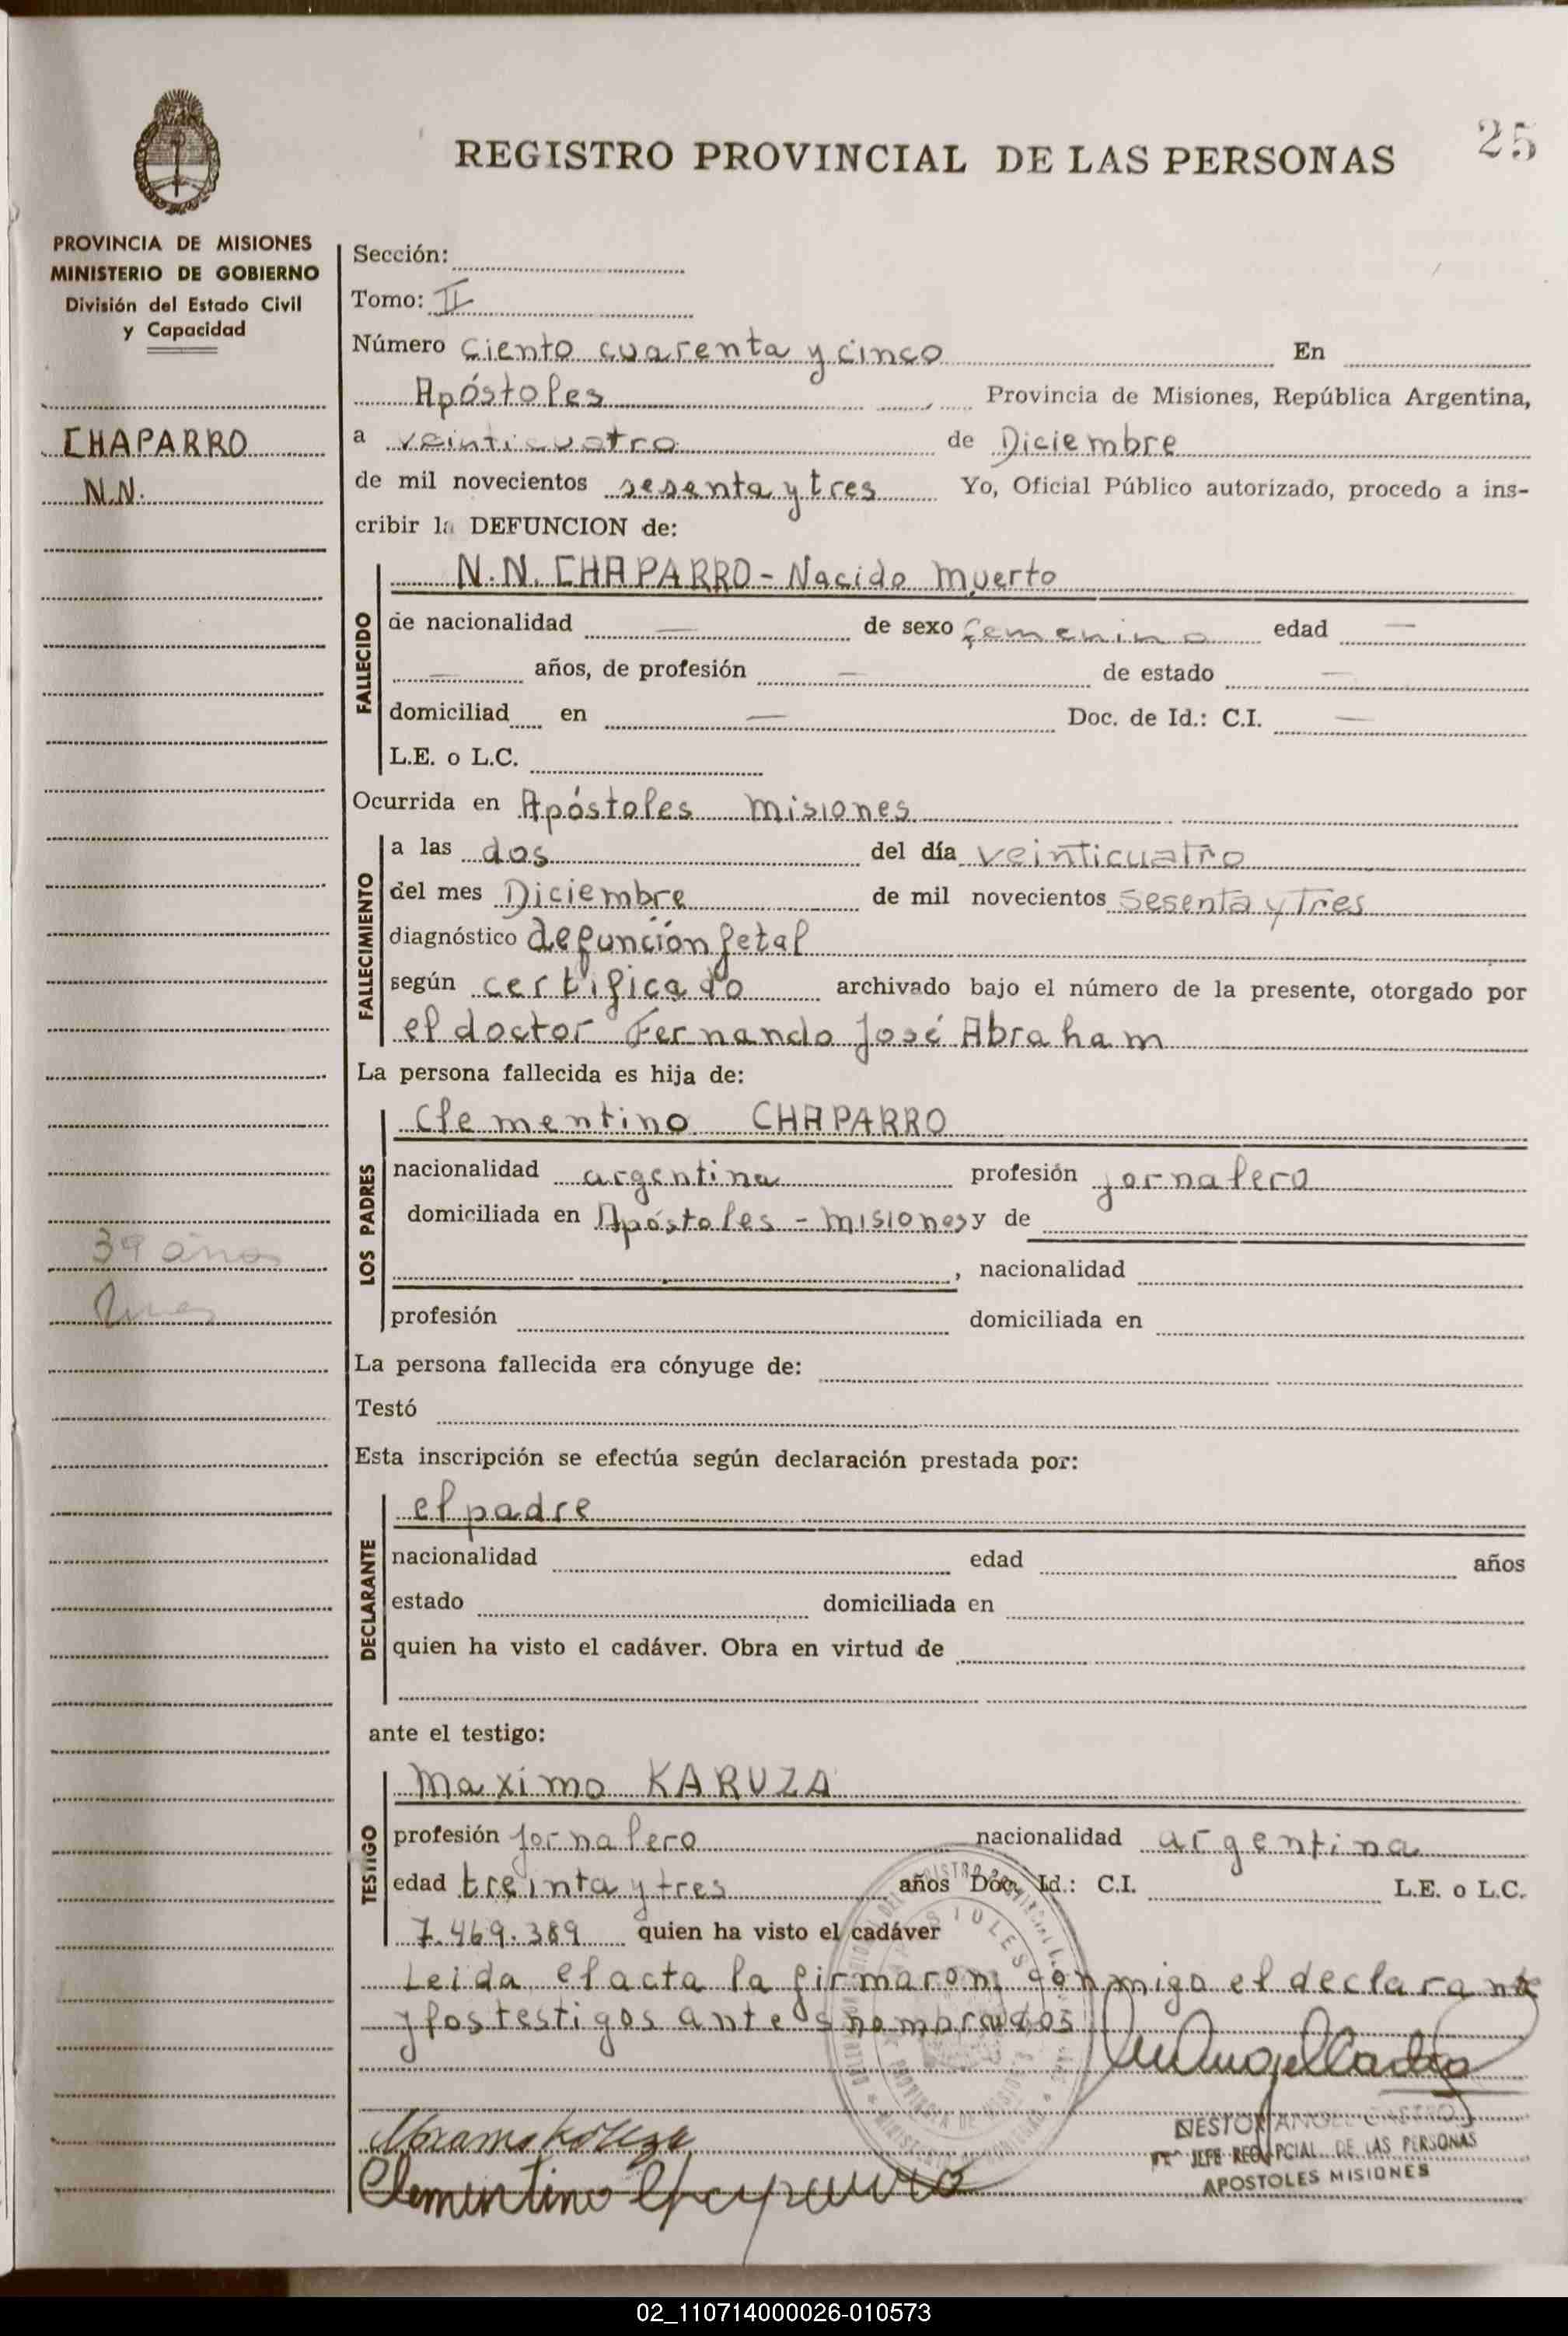 REGISTRO PROVINCIAL DE LAS PERSONAS
25
PROVINCIA DE MISIONES
MINISTERIO DE GOBIERNO
División del Estado Civil
y Capacidad
CHAPARRO
N.N.
39 años
Sección:
Tomo: II
Número Ciento cuarenta y cinco En
Apóstoles Provincia de Misiones, República Argentina,
a veinticuatro de Diciembre
de mil novecientos sesenta y tres Yo, Oficial Público autorizado, procedo a ins-
cribir la DEFUNCION de:
N.N. CHAPARRO - Nacido muerto
FALLECIDO
de nacionalidad — de sexo femenino edad —
— años, de profesión — de estado —
domiciliad en — Doc. de Id.: C.I. —
L.E. o L.C.
Ocurrida en Apóstoles Misiones
FALLECIMIENTO
a las dos del día veinticuatro
del mes Diciembre de mil novecientos sesenta y tres
diagnóstico defunción fetal
según certificado archivado bajo el número de la presente, otorgado por
el doctor Fernando José Abraham
La persona fallecida es hija de:
Clementino CHAPARRO
LOS PADRES
nacionalidad argentina profesión jornalero
domiciliada en Apóstoles - Misiones y de
, nacionalidad
profesión domiciliada en
La persona fallecida era cónyuge de:
Testó
Esta inscripción se efectúa según declaración prestada por:
el padre
DECLARANTE
nacionalidad edad años
estado domiciliada en
quien ha visto el cadáver. Obra en virtud de
ante el testigo:
Maximo KARUZA
TESTIGO
profesión jornalero nacionalidad argentina
edad treinta y tres años Doc. Id.: C.I. L.E. o L.C.
7.469.389 quien ha visto el cadáver
Leida el acta la firmaron conmigo el declarante
y los testigos antes nombrados
NESTOR ANGEL CASTRO
JEFE REG. PCIAL. DE LAS PERSONAS
APOSTOLES MISIONES
Clementino Chaparro
02_110714000026-010573